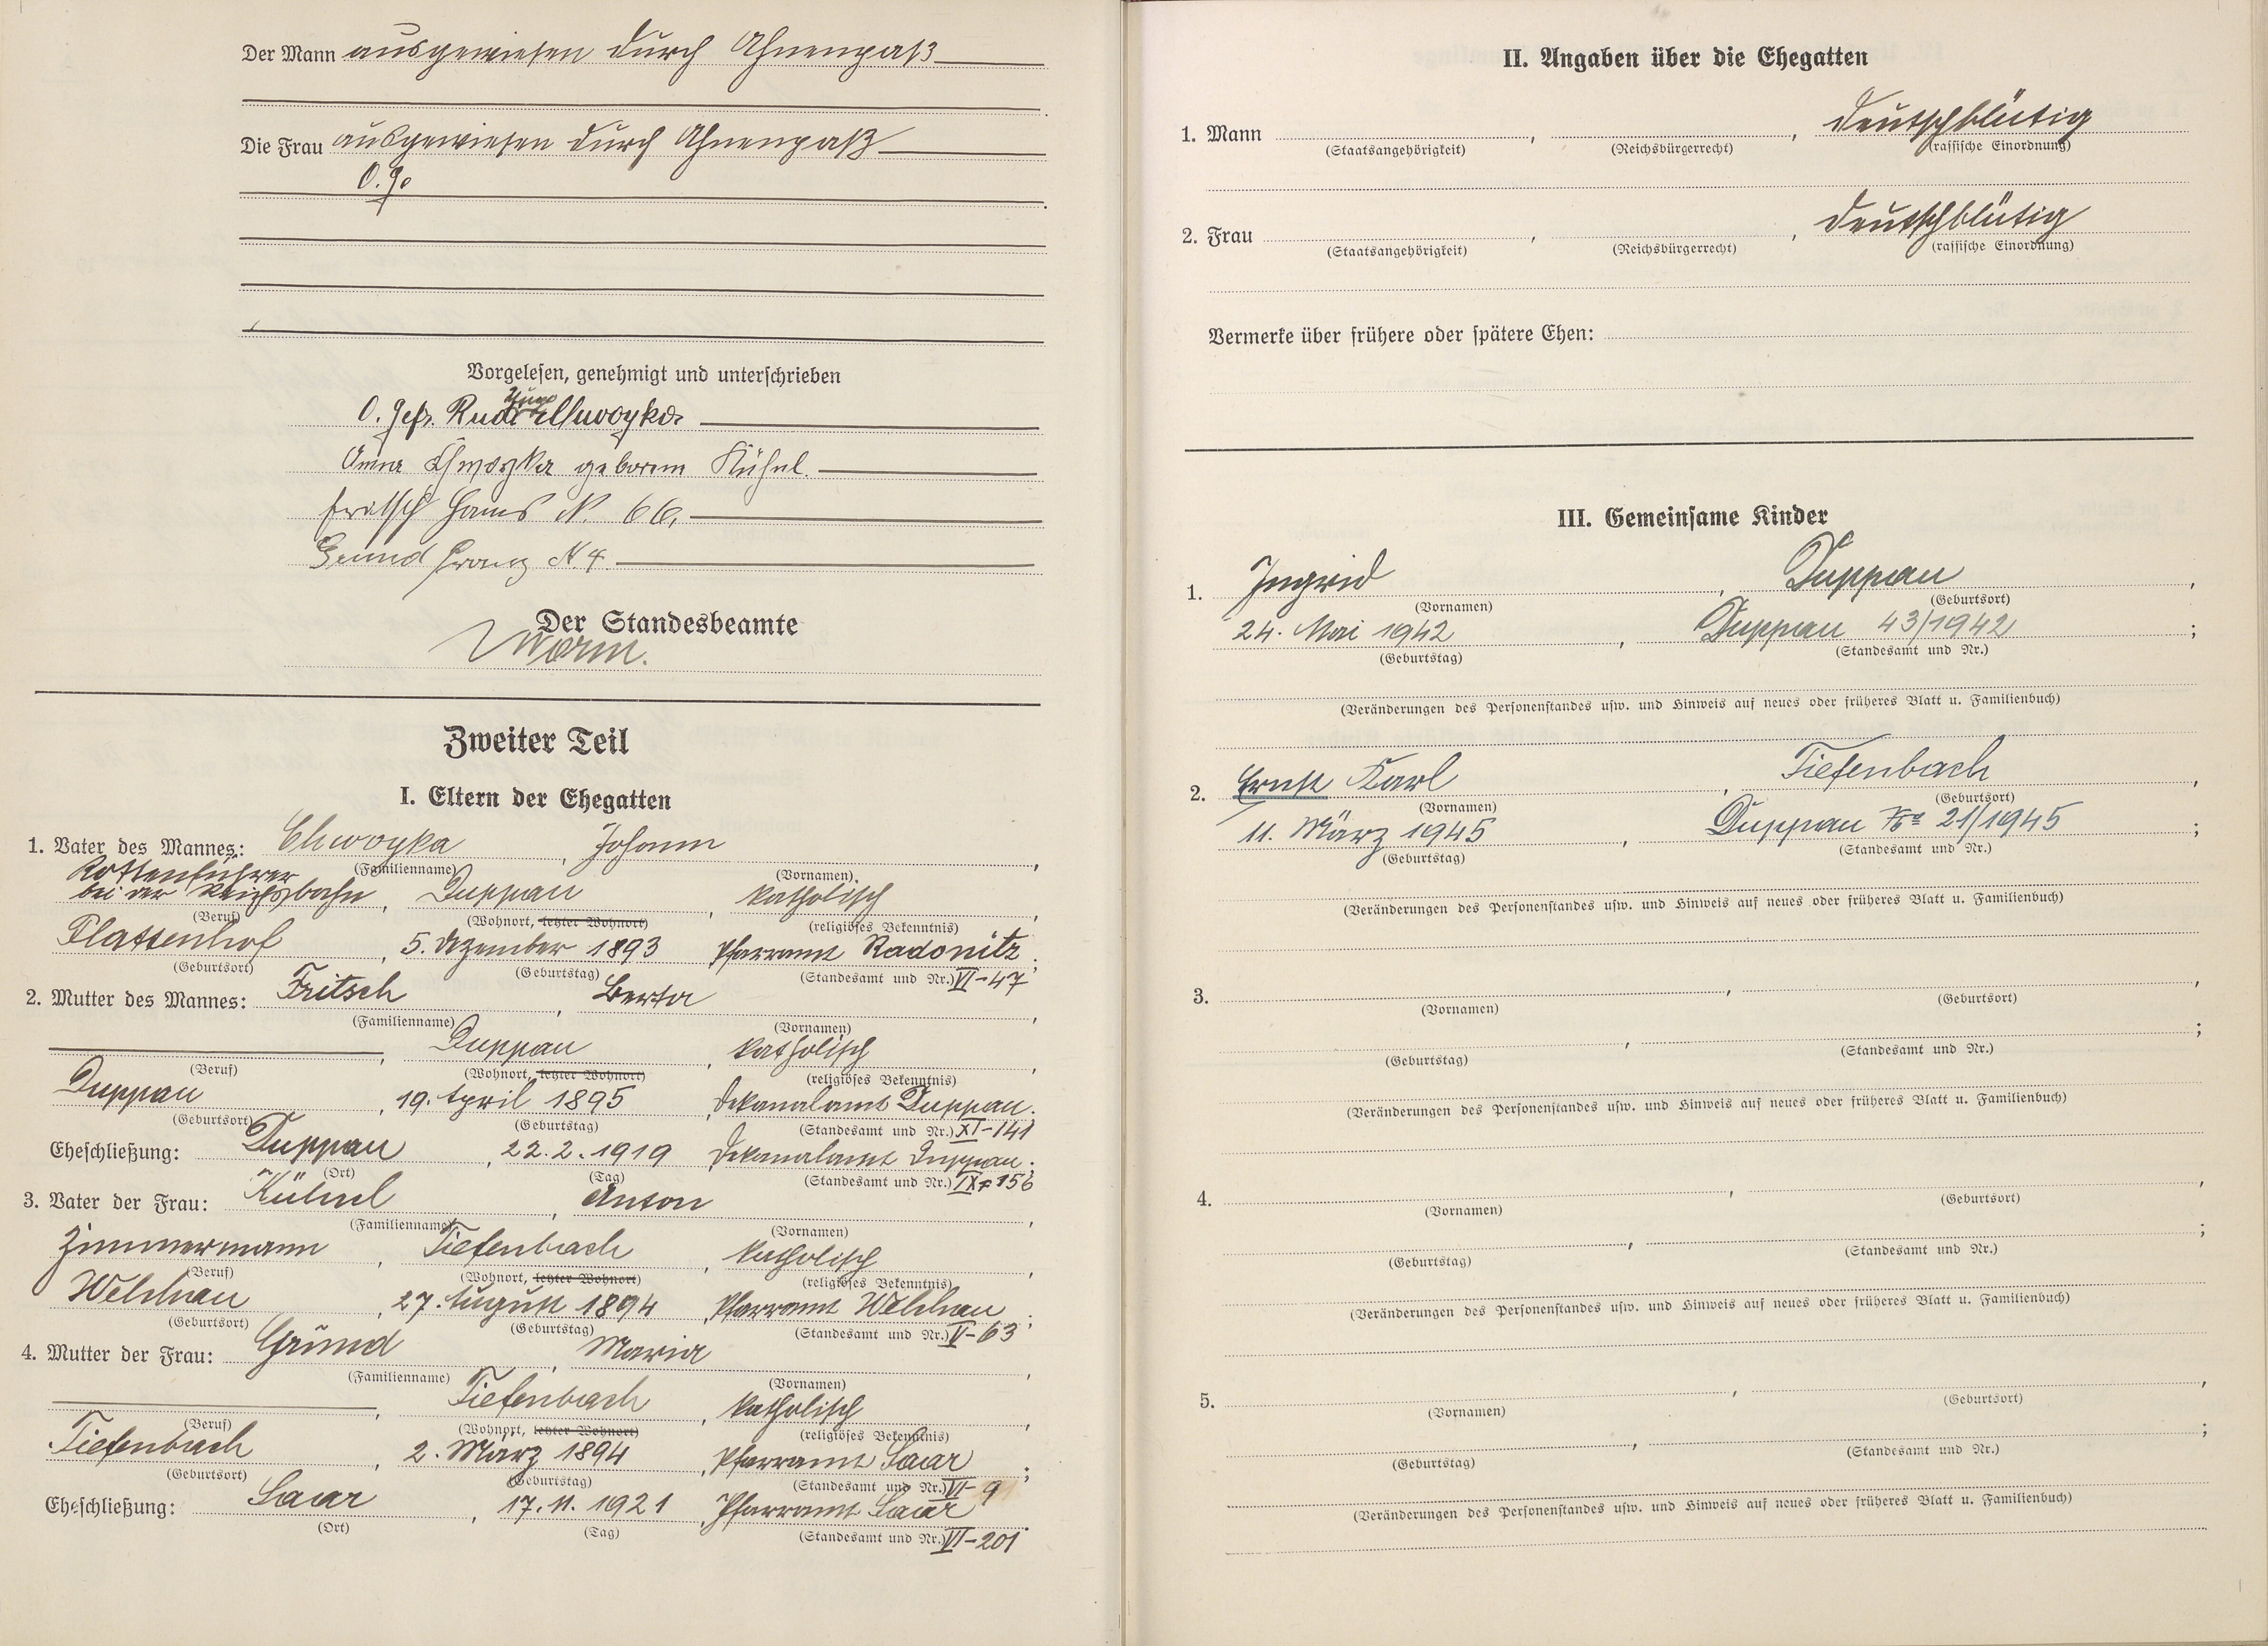 Der Mann ausgewiesen durch Ahnenpaß
Die Frau ausgewiesen durch Ahnenpaß
O. Ge
Vorgelesen, genehmigt und unterschrieben
O. Gefr. Chwoyka
Anna Chwoyka geboren Kühnl.
Fritsch Hans N. 66.
Grund Franz N 4.
Der Standesbeamte
Worm.
Zweiter Teil
I. Eltern der Ehegatten
1. Vater des Mannes: Chwoyka, Johann,
(Familienname) (Vornamen)
Rottenführer
bei der Reichsbahn, Duppau, katholisch,
(Beruf) (Wohnort, letzter Wohnort) (religiöses Bekenntnis)
Plattenhof, 5. Dezember 1893 Pfarramt Radonitz;
(Geburtsort) (Geburtstag) (Standesamt und Nr.) VI-47
2. Mutter des Mannes: Fritsch, Berta,
(Familienname) (Vornamen)
Duppau, katholisch,
(Beruf) (Wohnort, letzter Wohnort) (religiöses Bekenntnis)
Duppau, 19. April 1895, Dekanalamt Duppau.
(Geburtsort) (Geburtstag) (Standesamt und Nr.) XI-141
Eheschließung: Duppau, 22.2.1919 Dekanalamt Duppau;
(Ort) (Tag) (Standesamt und Nr.) IX-156
3. Vater der Frau: Kühnl, Anton,
(Familienname) (Vornamen)
Zimmermann, Tiefenbach, katholisch,
(Beruf) (Wohnort, letzter Wohnort) (religiöses Bekenntnis)
Welchau, 27. August 1894, Pfarramt Welchau;
(Geburtsort) (Geburtstag) (Standesamt und Nr.) V-63
4. Mutter der Frau: Grund, Maria,
(Familienname) (Vornamen)
Tiefenbach, katholisch,
(Beruf) (Wohnort, letzter Wohnort) (religiöses Bekenntnis)
Tiefenbach, 2. März 1894, Pfarramt Saar;
(Geburtsort) (Geburtstag) (Standesamt und Nr.) VI-9
Eheschließung: Saar, 17.11.1921, Pfarramt Saar
(Ort) (Tag) (Standesamt und Nr.) VI-201
II. Angaben über die Ehegatten
1. Mann, , deutschblütig
(Staatsangehörigkeit) (Reichsbürgerrecht) (rassische Einordnung)
2. Frau, , deutschblütig
(Staatsangehörigkeit) (Reichsbürgerrecht) (rassische Einordnung)
Vermerke über frühere oder spätere Ehen:
III. Gemeinsame Kinder
1. Ingrid, Duppau,
(Vornamen) (Geburtsort)
24. Mai 1942, Duppau 43/1942;
(Geburtstag) (Standesamt und Nr.)
(Veränderungen des Personenstandes usw. und Hinweis auf neues oder früheres Blatt u. Familienbuch)
2. Ernst Karl, Tiefenbach,
(Vornamen) (Geburtsort)
11. März 1945, Duppau No 21/1945;
(Geburtstag) (Standesamt und Nr.)
(Veränderungen des Personenstandes usw. und Hinweis auf neues oder früheres Blatt u. Familienbuch)
3. , ,
(Vornamen) (Geburtsort)
, ;
(Geburtstag) (Standesamt und Nr.)
(Veränderungen des Personenstandes usw. und Hinweis auf neues oder früheres Blatt u. Familienbuch)
4. , ,
(Vornamen) (Geburtsort)
, ;
(Geburtstag) (Standesamt und Nr.)
(Veränderungen des Personenstandes usw. und Hinweis auf neues oder früheres Blatt u. Familienbuch)
5. , ,
(Vornamen) (Geburtsort)
, ;
(Geburtstag) (Standesamt und Nr.)
(Veränderungen des Personenstandes usw. und Hinweis auf neues oder früheres Blatt u. Familienbuch)